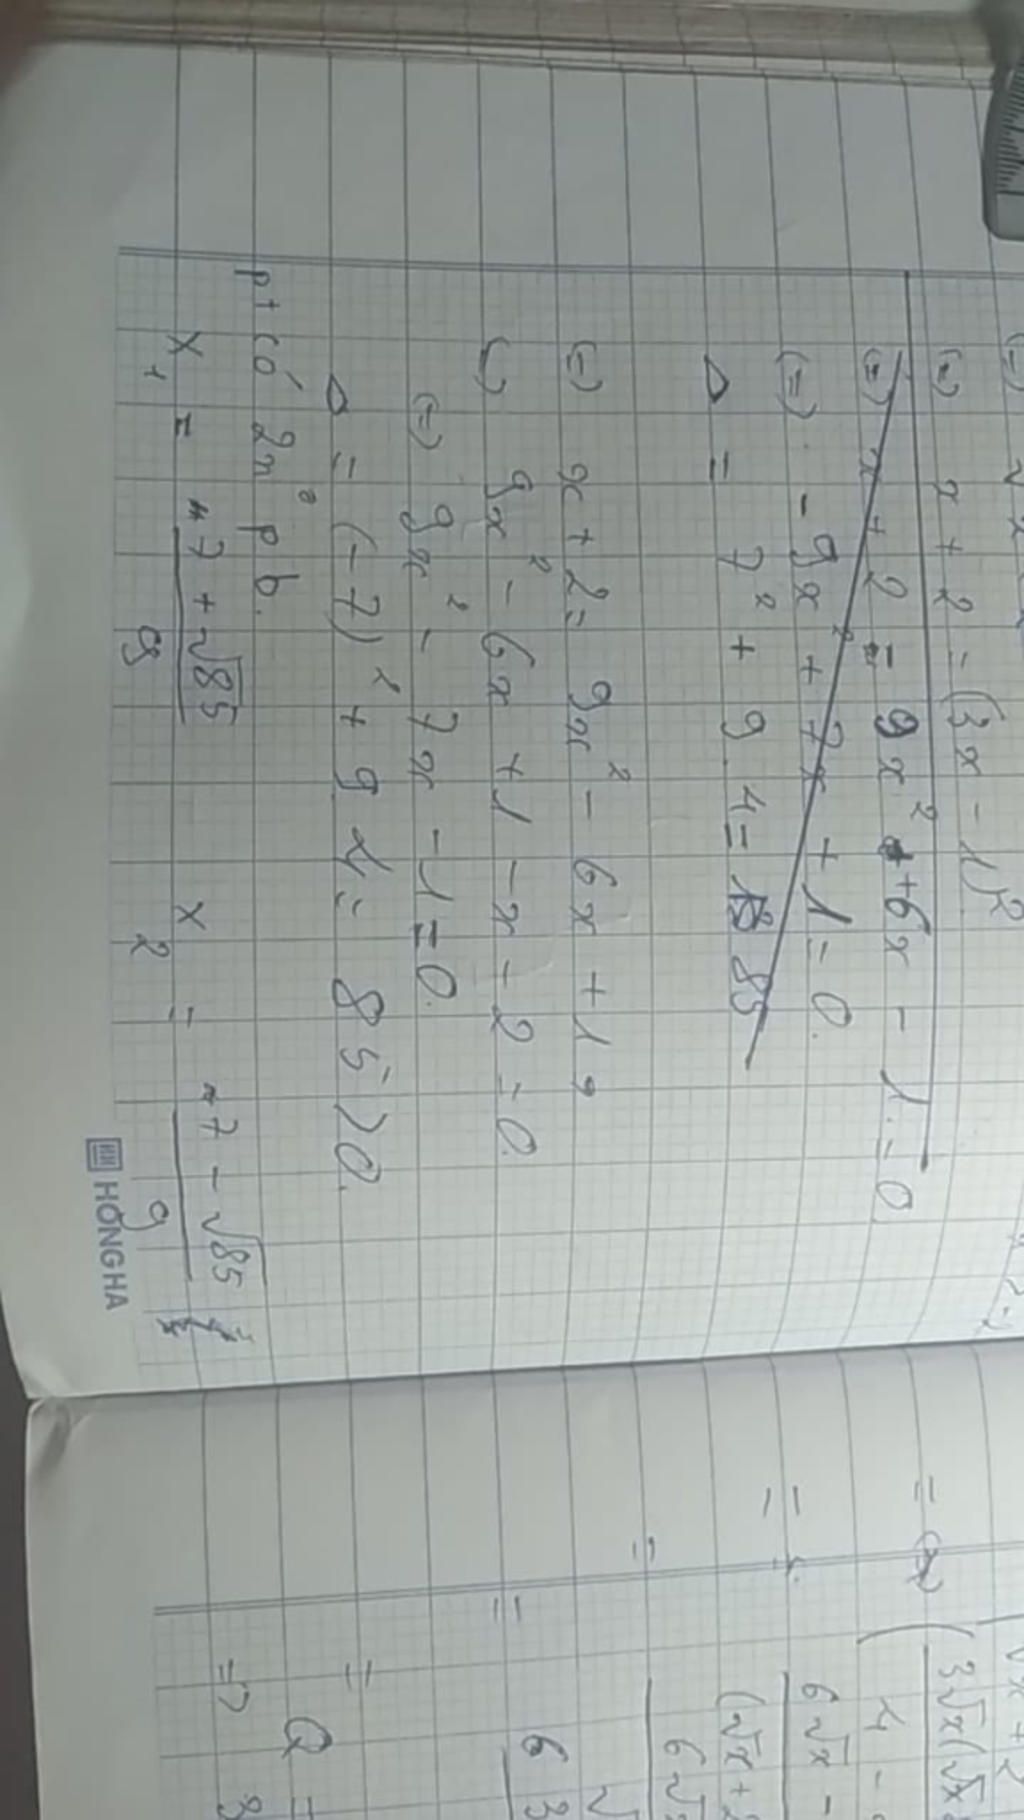 (=) x + 2 = (3x - 1)²
(=) x + 2 = 9x² + 6x - 1 = 0
(=) - 9x² + 7x + 1 = 0.
Δ = 7² + 9. 4 = 85
(=) x + 2 = 9x² - 6x + 1
(=) 9x² - 6x + 1 - x - 2 = 0.
(=) 9x² - 7x - 1 = 0.
Δ = (-7)² + 9. 4 = 85 > 0.
pt có 2nº pb.
x₁ = 7 + √85
9
x₂ = 7 - √85
9
HONGHA
3√x(√x
4 -
6√x -
(√x + 2
6√
6
3
Q =
=>